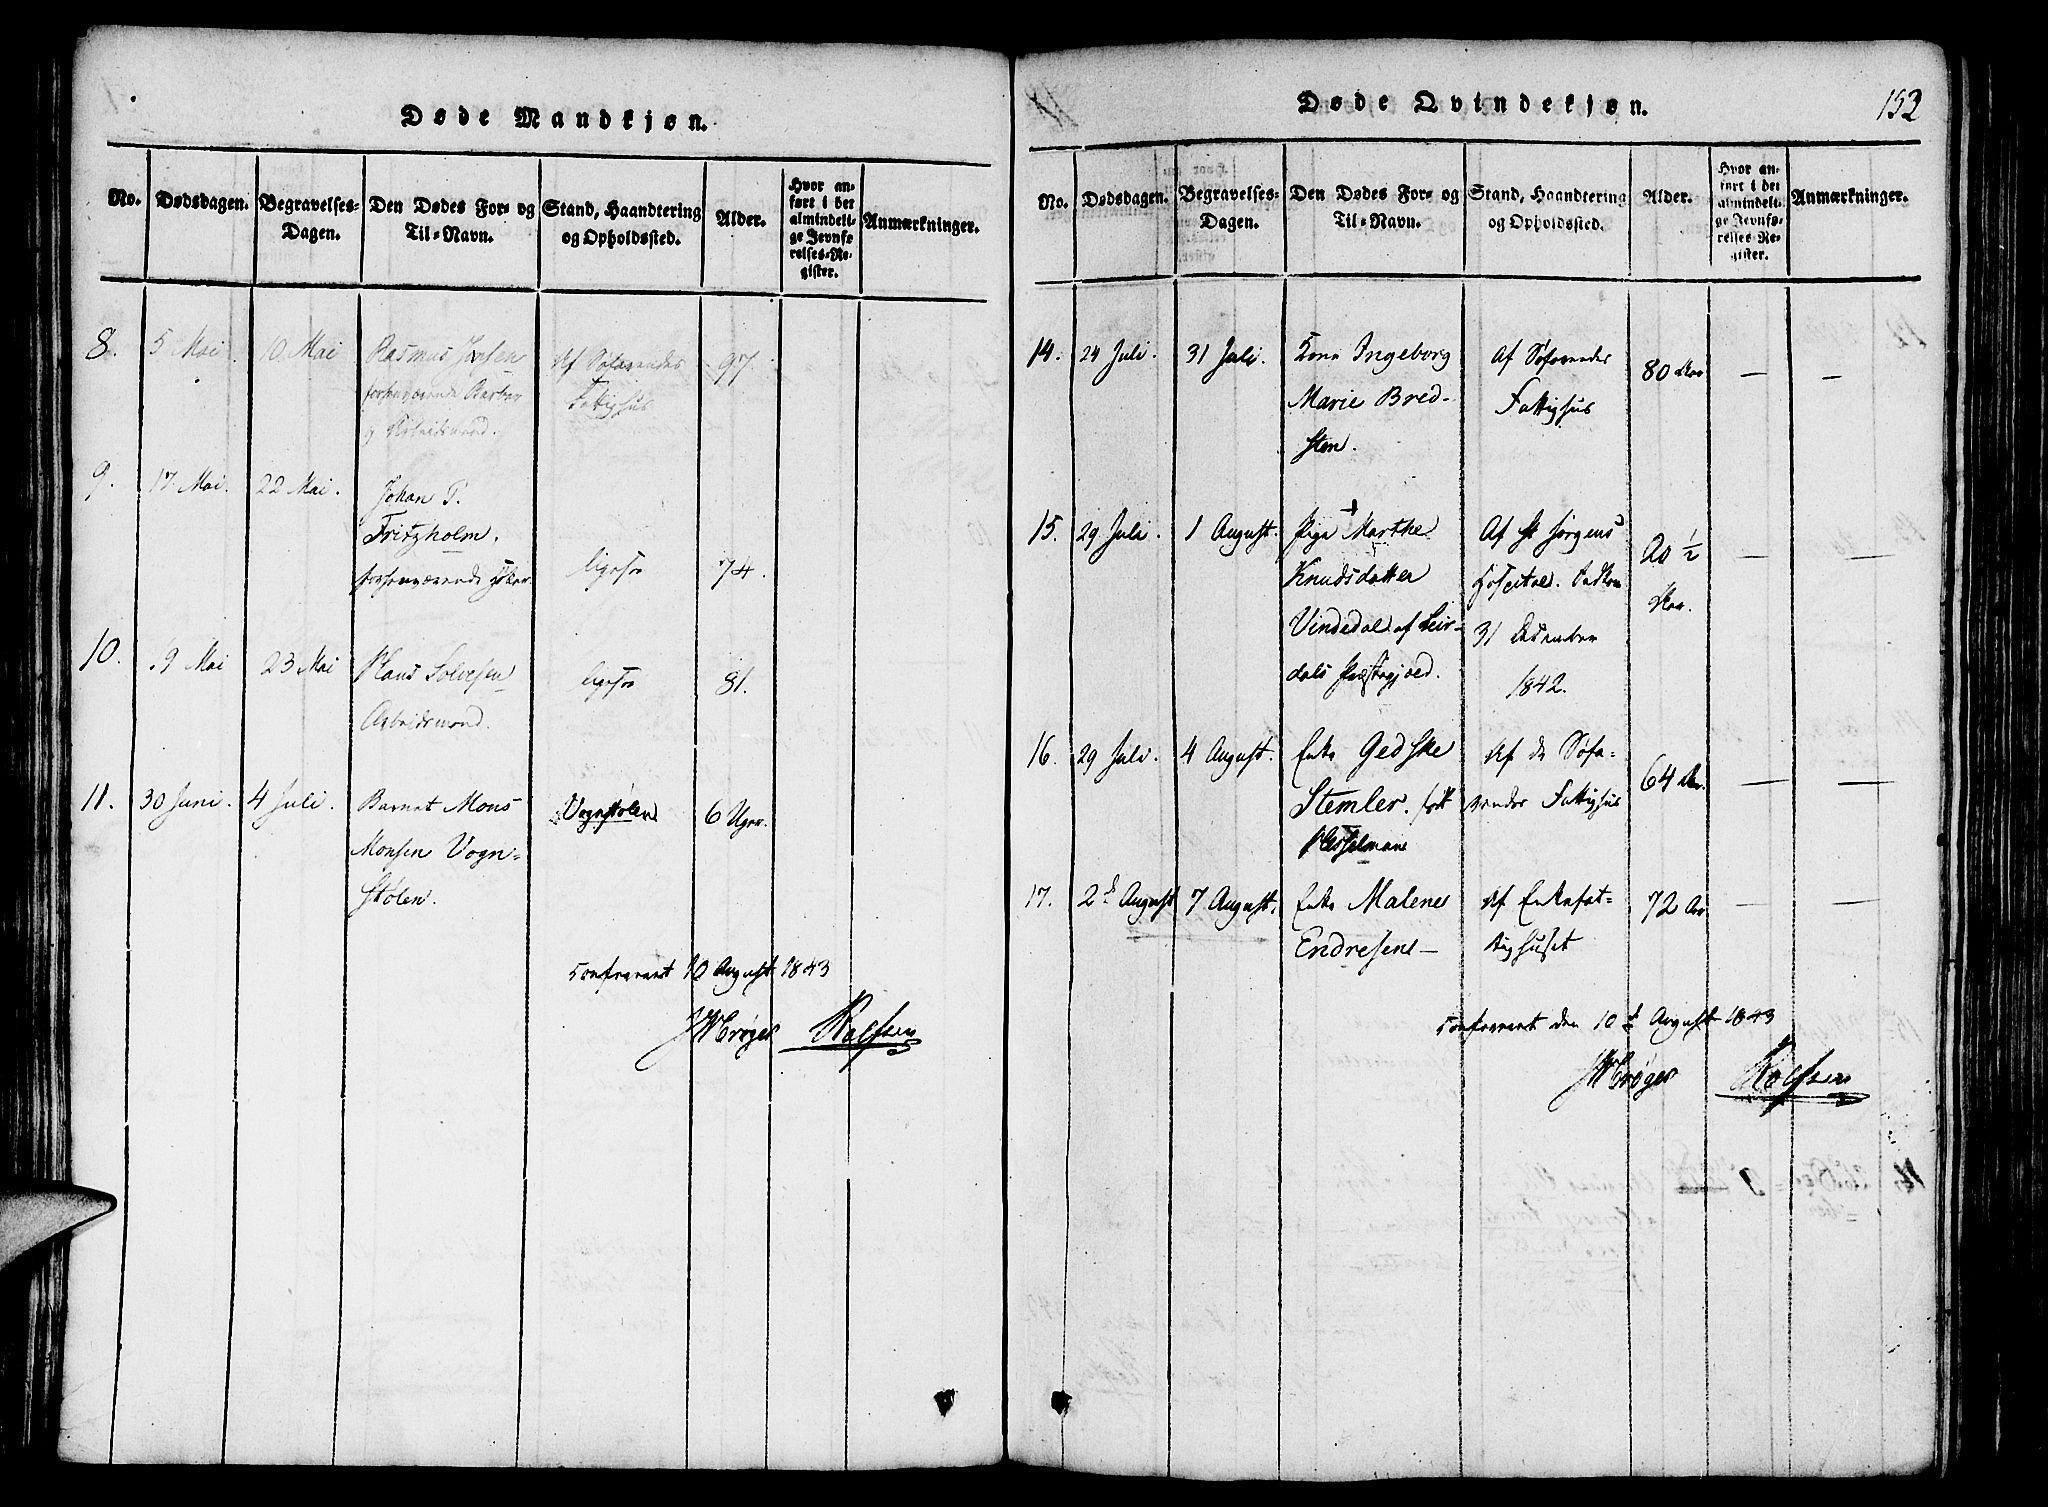 Døde Mandkjøn.
No. Dødsdagen. Begravelses-Dagen. Den Dødes For- og Til-Navn. Stand, Haandtering og Opholdssted. Alder. Hvor anført i det almindelige Jevnførelses-Register. Anmærkninger.
8. 5 Mai. 10 Mai Rasmus Af Søfarendes 97.
forhenværende Fattighus
og Arbeidsmand.
9. 17. Mai. 22 Mai. Johan P.
Fritzholm.
forhenværende ligesaa 74.
10. 19 Mai 23 Mai Hans Solvesen ligesaa 81.
Arbeidsmand.
11. 30 Juni. 4 Juli. Barnet Mons Vognstølen 6 Uger.
Monsen Vogn-
stølen.
Confereret 10 August 1843
JWCrøger Roefsen
Døde Qvindekjøn. 152
No. Dødsdagen. Begravelses-Dagen. Den Dødes For- og Til-Navn. Stand, Haandtering og Opholdssted. Alder. Hvor anført i det almindelige Jevnførelses-Register. Anmærkninger.
14. 24 Juli. 31 Juli. Kone Ingeborg Af Søfarendes 80 Aar — —
Marie Bred- Fattighus
sten.
15. 29 Juli. 1 August. Pige Marthe Af St Jørgens 20 ½ — —
Knudsdatter Hospital. Indkom Aar.
Vindedal af Leir- 31 December
dals Præstegjæld. 1842.
16. 29 Juli. 4 August. Enke Gedske Af de Søfa- 64 Aar. — —
Stemler. født rendes Fattighus
Hesselmann
17. 2d August 7 August. Enke Malene Af Enkefat- 72 Aar — —
Endresen — tighuset
Confereret den 10d August 1843
JWCrøger Roefsen